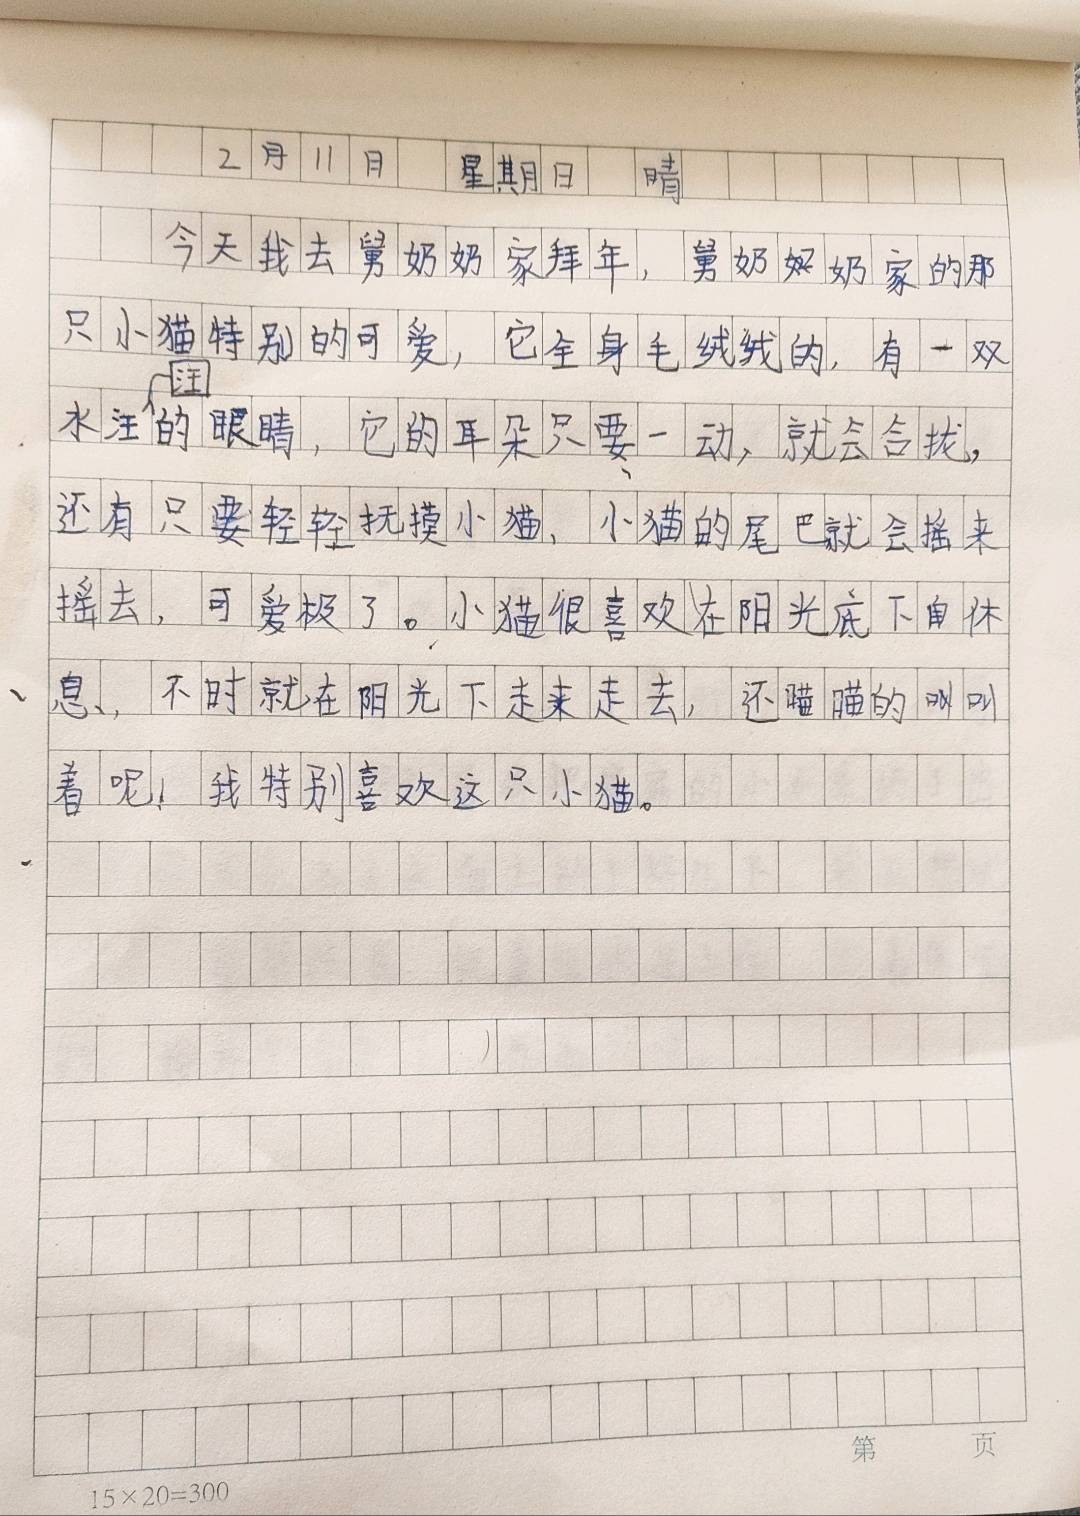 2月11日 星期日 晴
今天我去舅奶奶家拜年，舅奶奶奶家的那
只小猫特别的可爱，它全身毛绒绒的，有一双
水汪汪的眼睛，它的耳朵只要一动，就会合拢，
还有只要轻轻抚摸小猫，小猫的尾巴就会摇来
摇去，可爱极了。小猫很喜欢在阳光底下自休
息，不时就在阳光下走来走去，还喵喵的叫叫
着呢！我特别喜欢这只小猫。
第 页
15×20=300